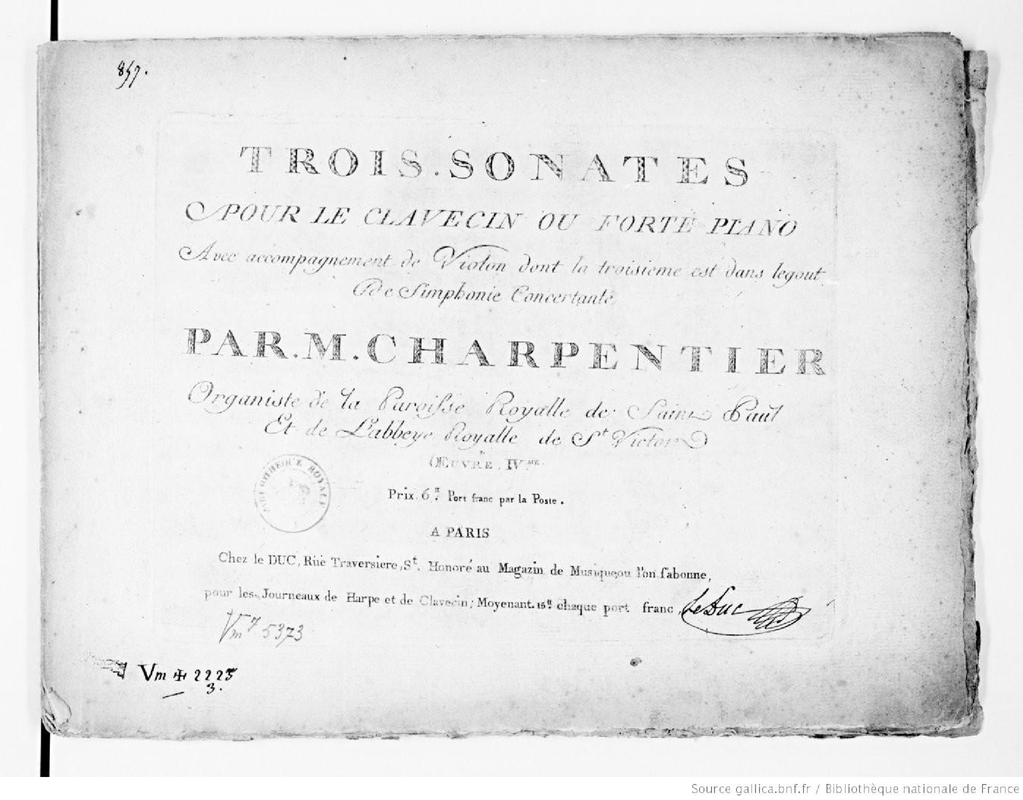 TROIS.SONATES
POUR LE CLAVECIN OU FORTE PIANO
Avec accompagnement de Violon dont la troisieme est dans legout
De Simphonie Concertante
PAR.M.CHARPENTIER
Organiste de la Paroisse Royalle de Saint Paul
Et de L'abbeye Royalle de St Victor
ŒUVRE. IVme.
BIBLIOTHEQUE ROYALE
Prix 6tt. Port franc par la Poste.
A PARIS
Chez le DUC, Rue Traversiere, St. Honoré au Magazin de Musique, ou l'on s'abonne,
pour les Journeaux de Harpe et de Clavecin; Moyenant. 15tt chaque port franc, le Duc
Vm 7 5373
Vm ✠ 2225
3.
Source gallica.bnf.fr / Bibliothèque nationale de France